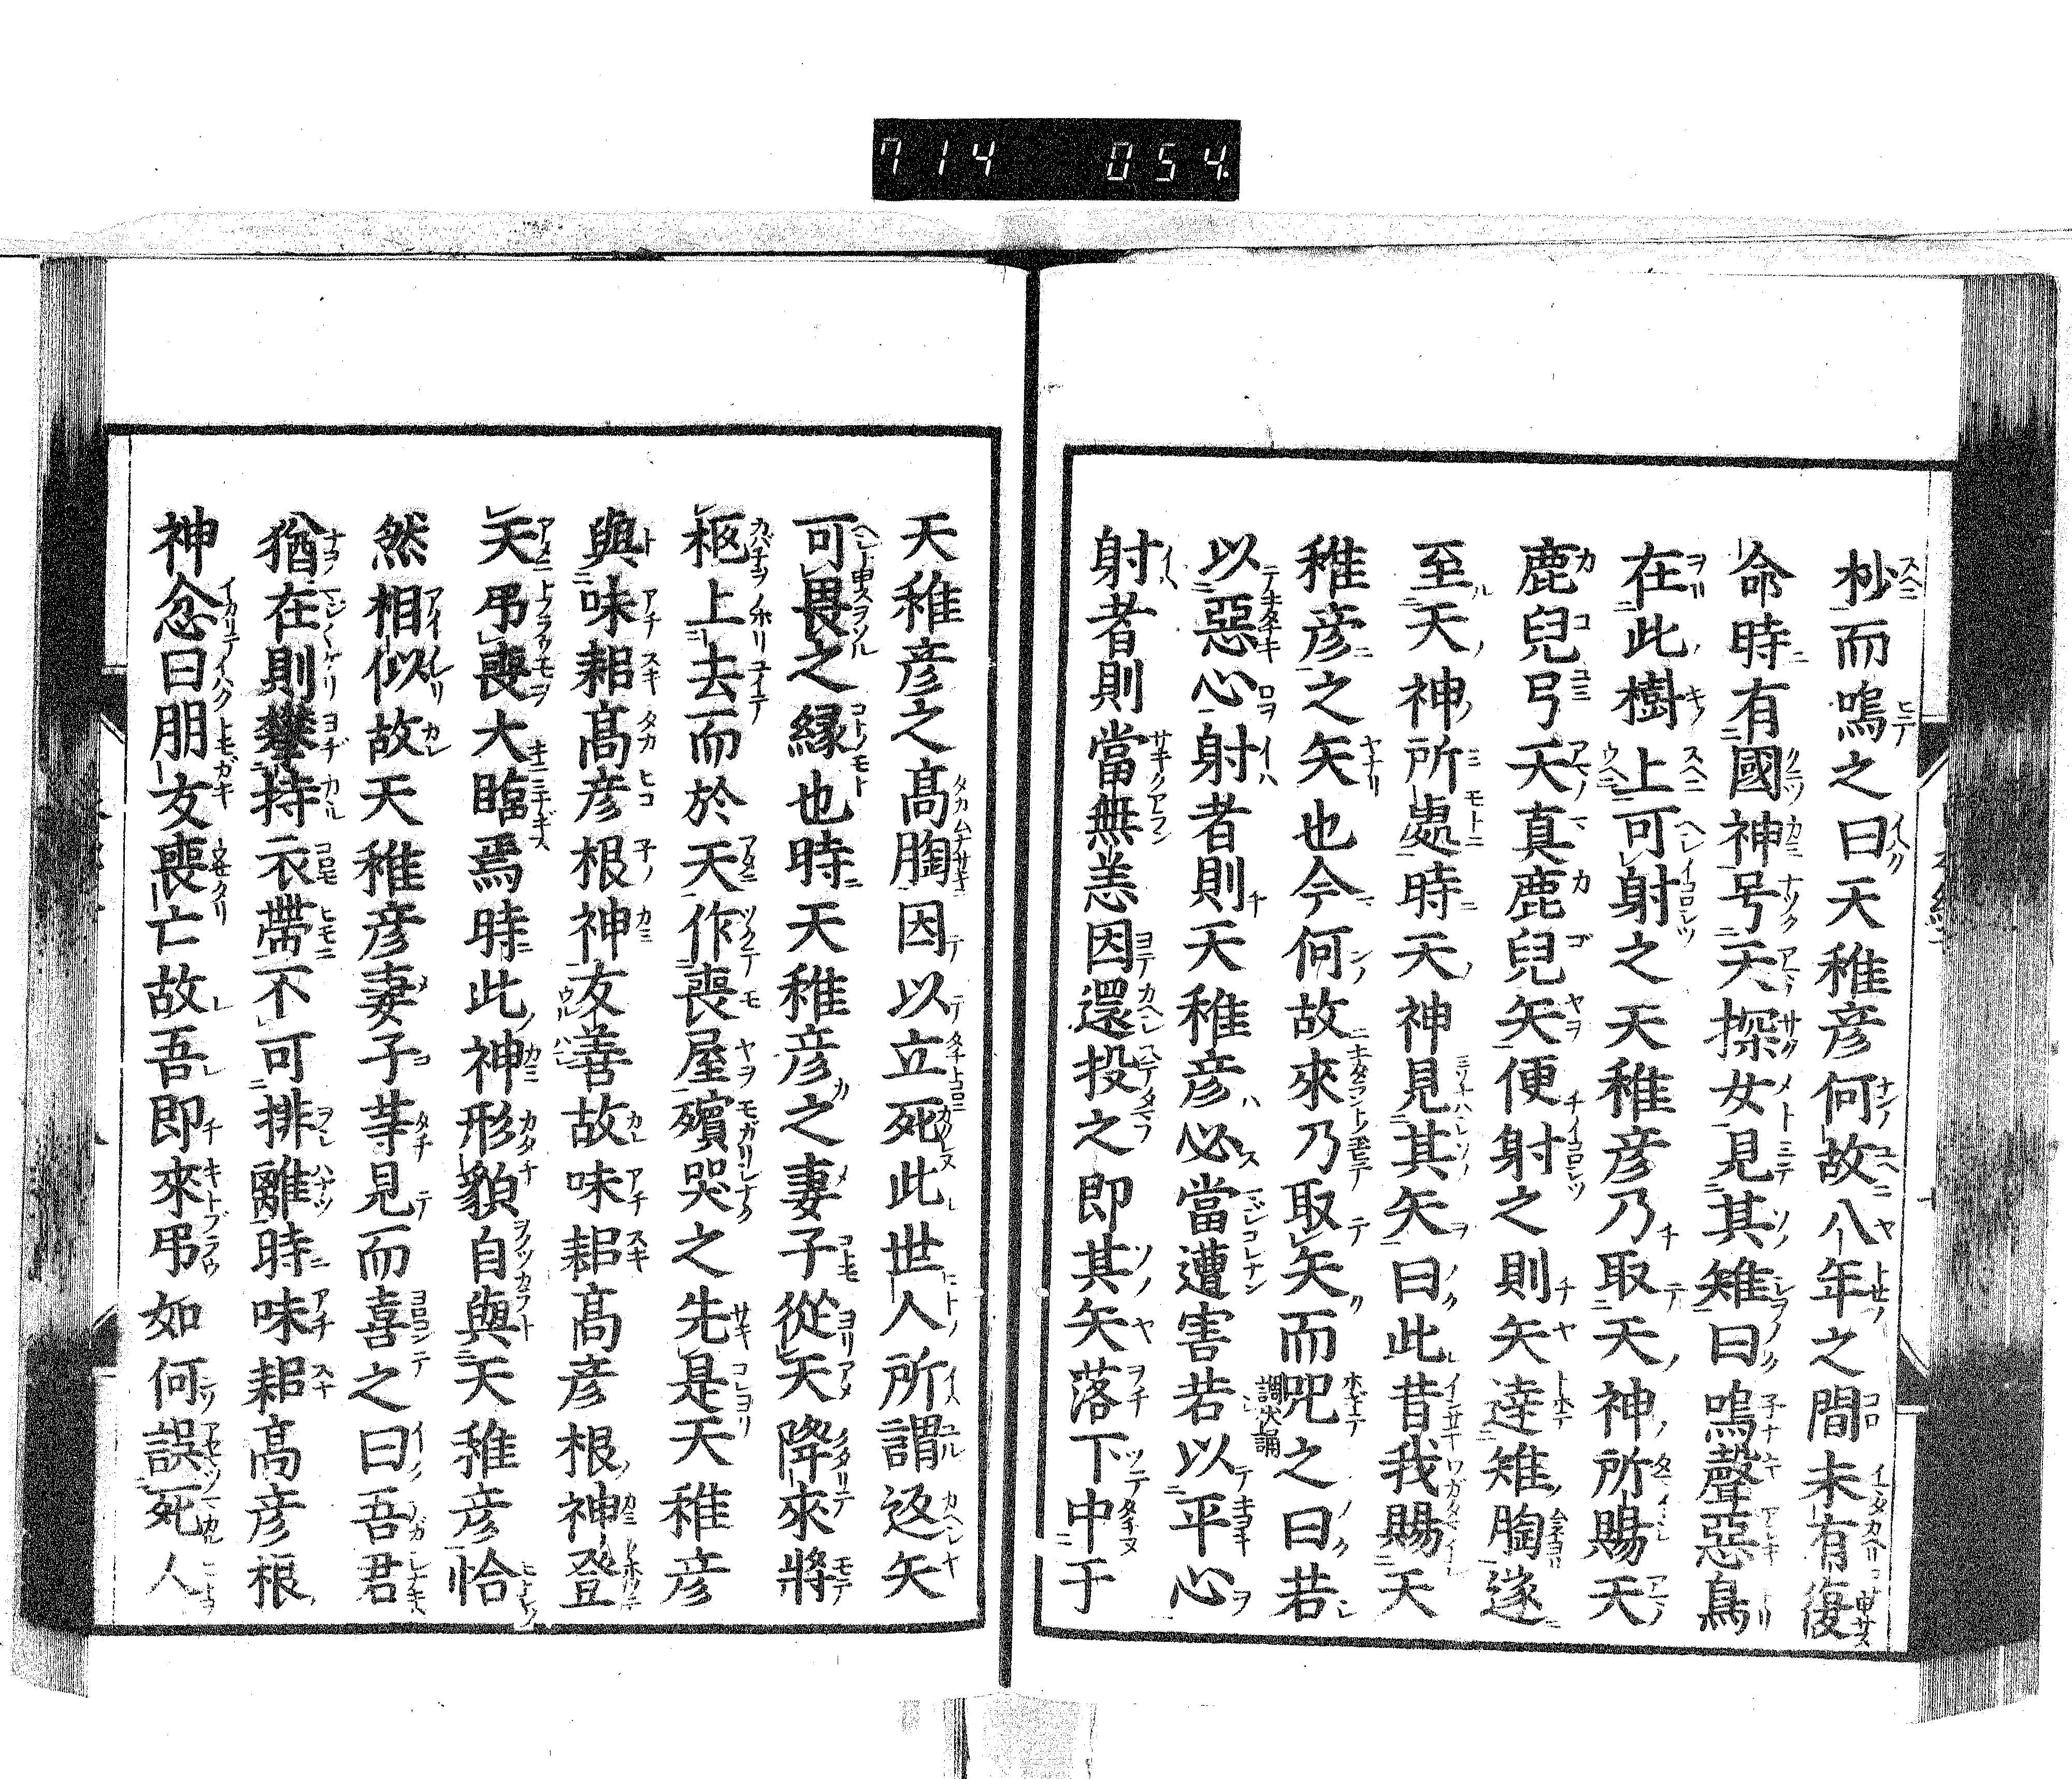 714 054
杪而鳴之曰天稚彦何故八年之間未有復
命時有國神号天探女見其雉曰鳴聲惡鳥
在此樹上可射之天稚彦乃取天神所賜天
鹿兒弓天真鹿兒矢便射之則矢達雉胸遂
至天神所處時天神見其矢曰此昔我賜天
稚彦之矢也今何故來乃取矢而咒之曰若
以惡心射者則天稚彦必當遭害若以平心
射者則當無恙因還投之即其矢落下中于
天稚彦之髙胸因以立死此世人所謂返矢
可畏之縁也時天稚彦之妻子從天降來將
柩上去而於天作喪屋殯哭之先是天稚彦
與味耜髙彦根神友善故味耜髙彦根神登
天弔喪大臨焉時此神形貌自與天稚彦恰
然相似故天稚彦妻子等見而喜之曰吾君
猶在則攀持衣帶不可排離時味耜髙彦根
神忿曰朋友喪亡故吾即來弔如何誤死人